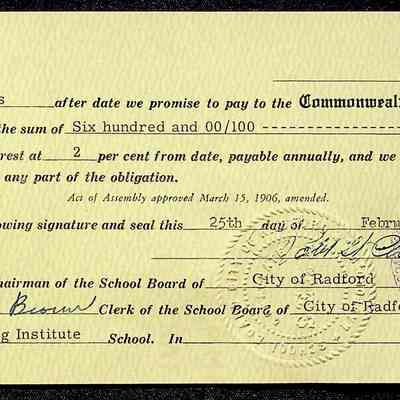 s after date we promise to pay to the Commonweal
the sum of Six hundred and 00/100 ----------
rest at 2 per cent from date, payable annually, and we
any part of the obligation.
Act of Assembly approved March 15, 1906, amended.
owing signature and seal this 25th day of Febru
Chairman of the School Board of City of Radford
Brown Clerk of the School Board of City of Radfo
g Institute School. In